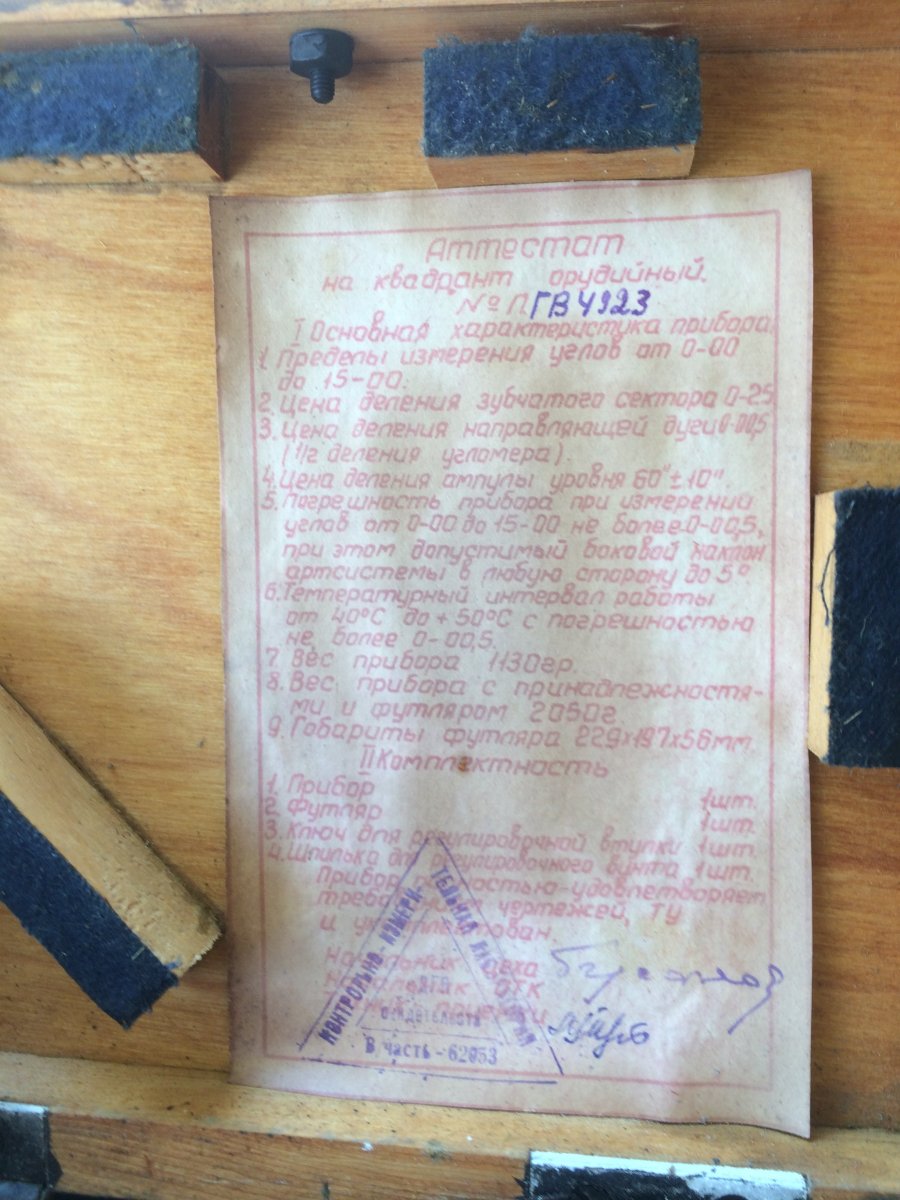 Аттестат
на квадрант орудийный.
№ П ГВ4923
I Основная характеристика прибора
1. Пределы измерения углов от 0-00
до 15-00.
2. Цена деления зубчатого сектора 0-25
3. Цена деления направляющей дуги 0-00,5
(1/2 деления угломера).
4. Цена деления ампулы уровня 60" ± 10".
5. Погрешность прибора при измерении
углов от 0-00 до 15-00 не более 0-00,5,
при этом допустимый боковой наклон
артсистемы в любую сторону до 5°
6. Температурный интервал работы
от 40°С до +50°С с погрешностью
не более 0-00,5.
7. Вес прибора 1130гр.
8. Вес прибора с принадлежностя-
ми и футляром 2050г.
9. Габариты футляра 229х197х56мм.
II Комплектность
1. Прибор 1шт.
2. Футляр 1шт.
3. Ключ для регулировочной втулки 1шт.
4. Шпилька для регулировочного винта 1шт.
Прибор удовлетворяет
чертежей, ТУ
и
Начальник цеха
ОТК
КОНТРОЛЬНО-ИЗМЕРИ-
ТЕЛЬНАЯ
В часть - 62053